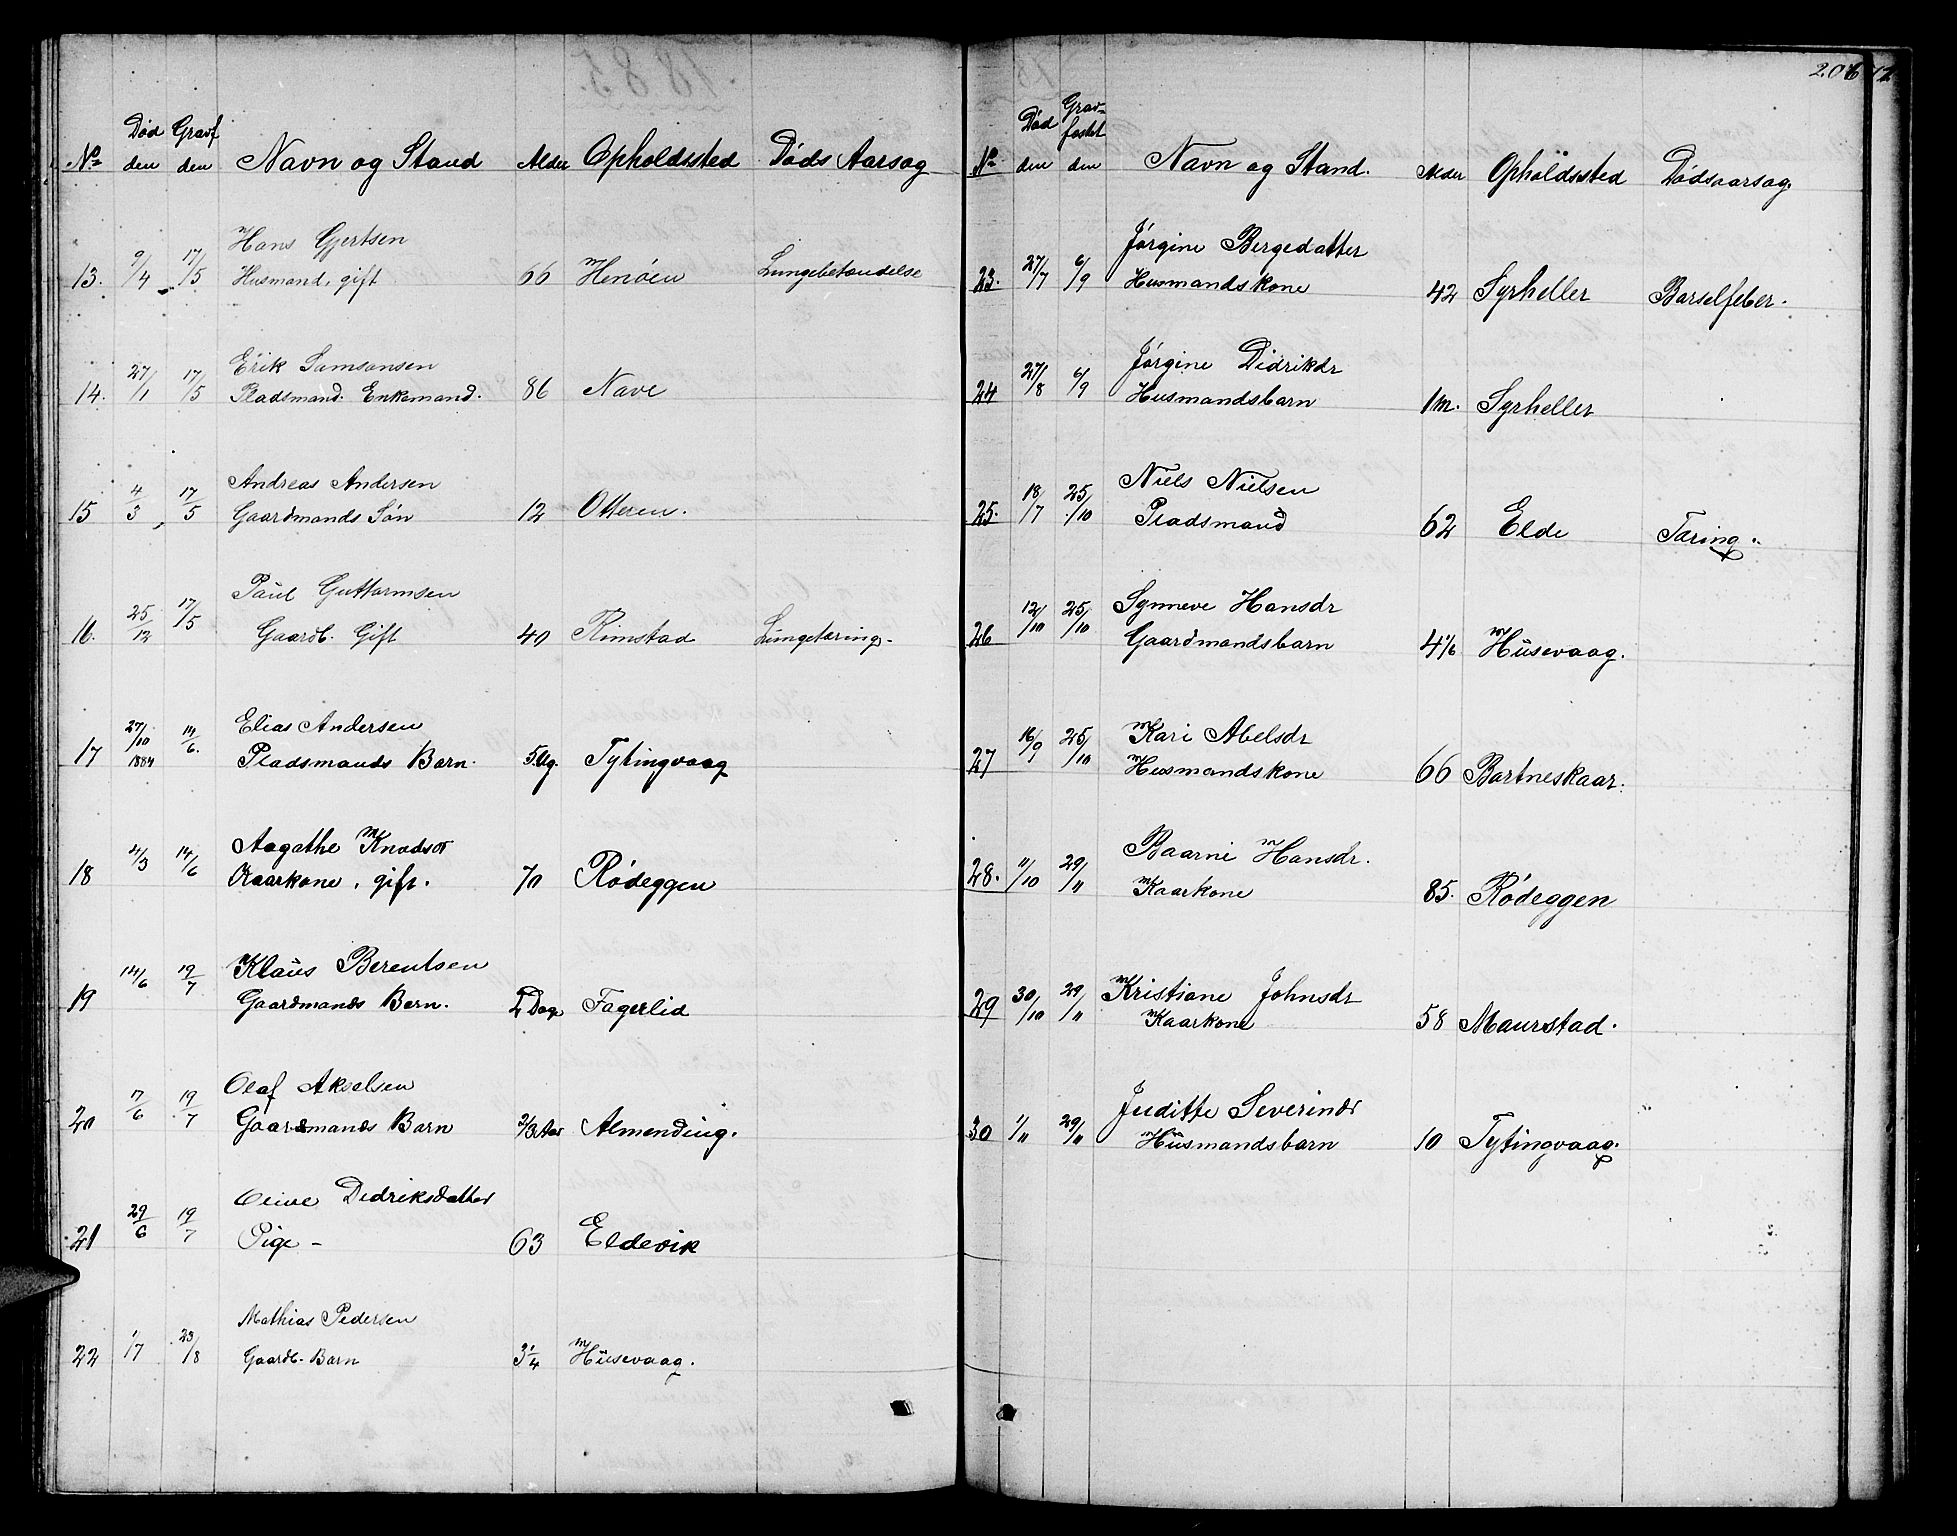 1885.
206
Nº Død den Gravf den Navn og Stand Alder Opholdssted Døds Aarsag
13. 9/4 17/5 Hans Gjertsen
Husmand, gift 66 Henøen Lungebetændelse
14. 27/1 17/5 Erik Samsonsen
Pladsmand. Enkemand. 86 Nave
15 4/3 17/5 Andreas Andersen
Gaardmands Søn 12 Otteren.
16. 25/12 17/5 Paul Guttormsen
Gaardb. Gift 40 Rimstad Lungetæring.
17 27/10 1884 14/6. Elias Andersen
Pladsmands Barn. 5 Ug. Tytingvaag
18 4/3 14/6 Aagathe Knudsdr
Kaarkone, gift. 70 Rødeggen
19 14/6 19/7 Klaus Berentsen
Gaardmands Barn. 2 Dage Fagerlid
20 7/6 19/7 Olaf Akselsen
Gaardmands Barn 2/3 Aar Almending.
21 29/6 19/7 Oline Didriksdatter
Pige - 63 Eldevik
22 1/7 23/8 Mathias Pedersen
Gaardb. Barn 3 1/4 Husevaag.
Nº Død den Gravfæstet den Navn og Stand. Alder Opholdssted Dødsaarsag.
23. 27/7 6/9 Jørgine Bergedatter
Husmandskone 42 Syrheller Barselfeber.
24 27/8 6/9 Jørgine Didrikdr
Husmandsbarn 1m. Syrheller
25. 18/7 25/10 Niels Nielsen
Pladsmand 62 Elde Tæring.
26 12/10 25/10 Synneve Hansdr
Gaardmandsbarn 4 1/6 Husevaag.
27 16/9 25/10 Kari Abelsdr
Husmandskone 66 Bortneskaar.
28. 11/10 29/11 Baarni Hansdr.
Kaarkone 85. Rødeggen
29 30/10 29/11 Kristiane Johnsdr
Kaarkone 58 Maurstad.
30 1/11 29/11 Juditte Severindr
Husmandsbarn 10 Tytingvaag.